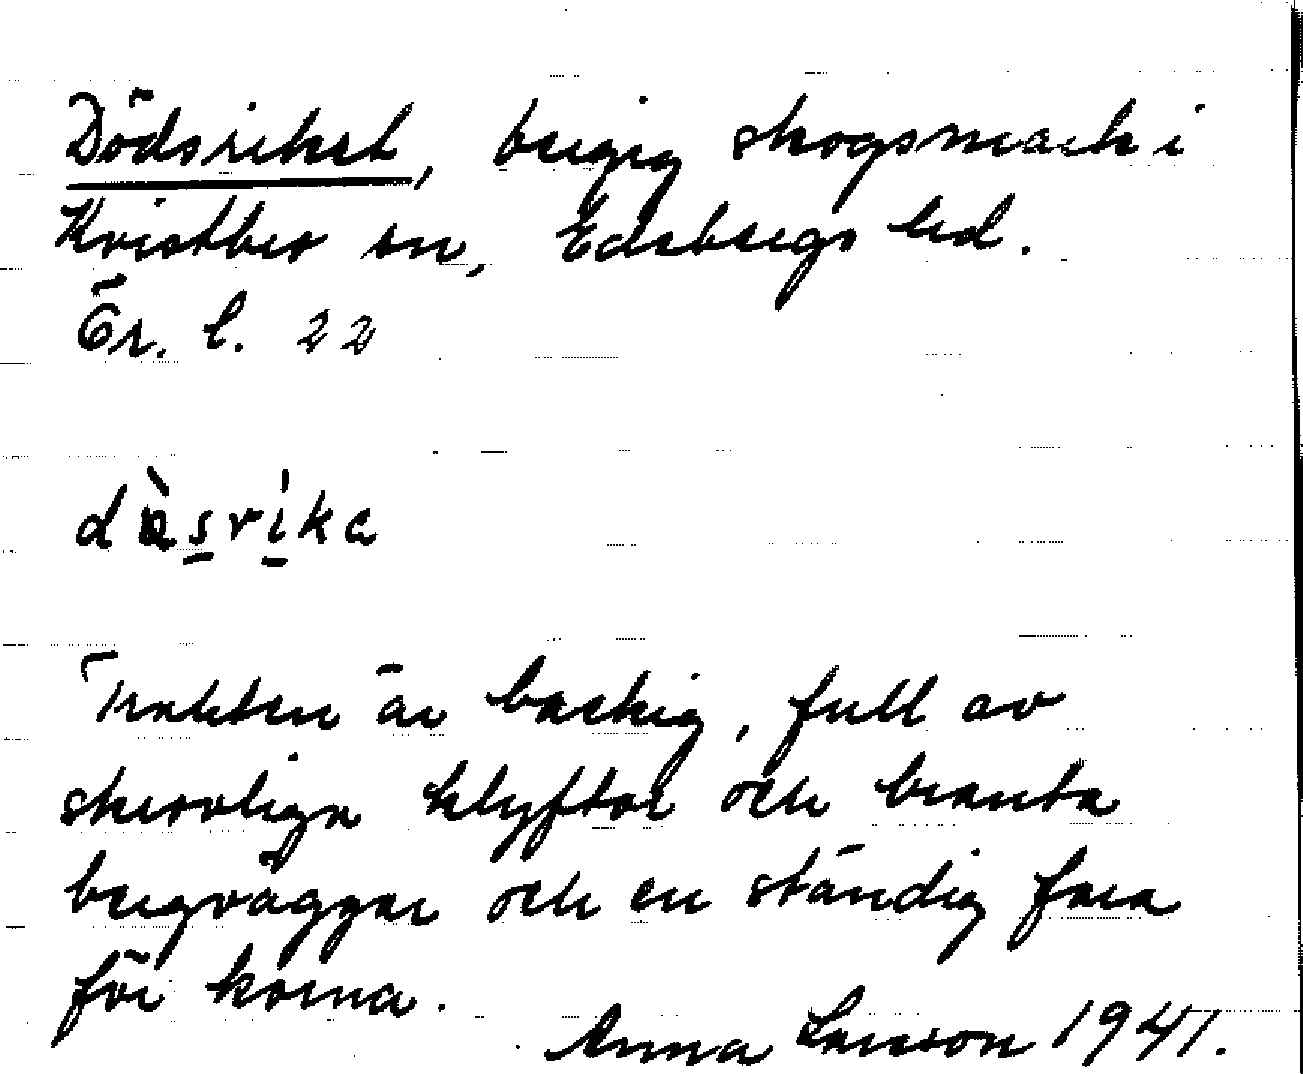 Dödsriket, bergig skogsmark i
Kristbergs sn, Edsbergs hd.
Ör. l. 22
dösrika
Trakten är backig, full av
skrovliga klyftor och branta
bergväggar och en ständig fara
för korna.
Anna Larsson 1941.